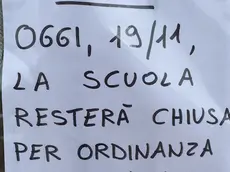 OGGI, 19/11,
LA SCUOLA
RESTERÀ CHIUSA
PER ORDINANZA